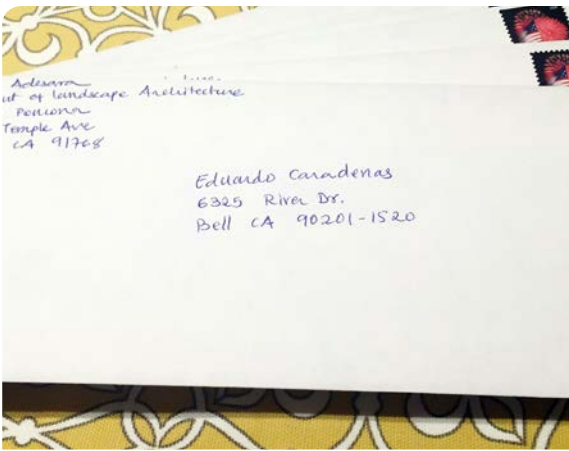 Adesara
ut of landscape Architecture
Pomona
Temple Ave
CA 91768
Eduardo Caradenas
6325 River Dr.
Bell CA 90201-1520